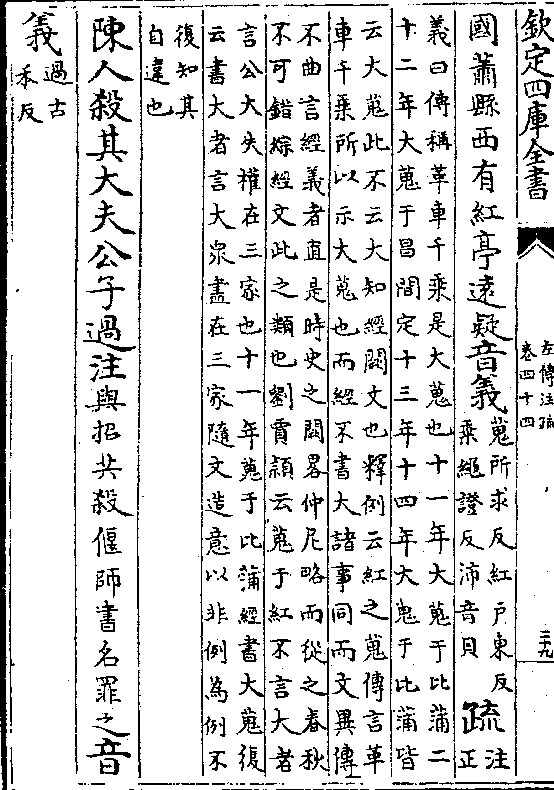 欽定四庫全書
左傳注疏
卷四十四
三九
國蕭縣西有紅亭遠疑音義蒐所求反紅戶東反
乘繩證反沛音貝疏注
正
義曰傳稱革車千乘是大蒐也十一年大蒐于比蒲二
十二年大蒐于昌間定十三年十四年大蒐于比蒲皆
云大蒐此不云大知經闕文也釋例云紅之蒐傳言革
車千乘所以示大蒐也而經不書大諸事同而文異傳
不曲言經義者直是時史之闕畧仲尼略而從之春秋
不可錯綜經文此之類也劉賈頴云蒐于紅不言大者
言公大失權在三家也十一年蒐于比蒲經書大蒐復
云書大者言大衆盡在三家隨文造意以非例為例不
復知其
自違也
陳人殺其大夫公子過注與招共殺偃師書名罪之音
義過古
禾反